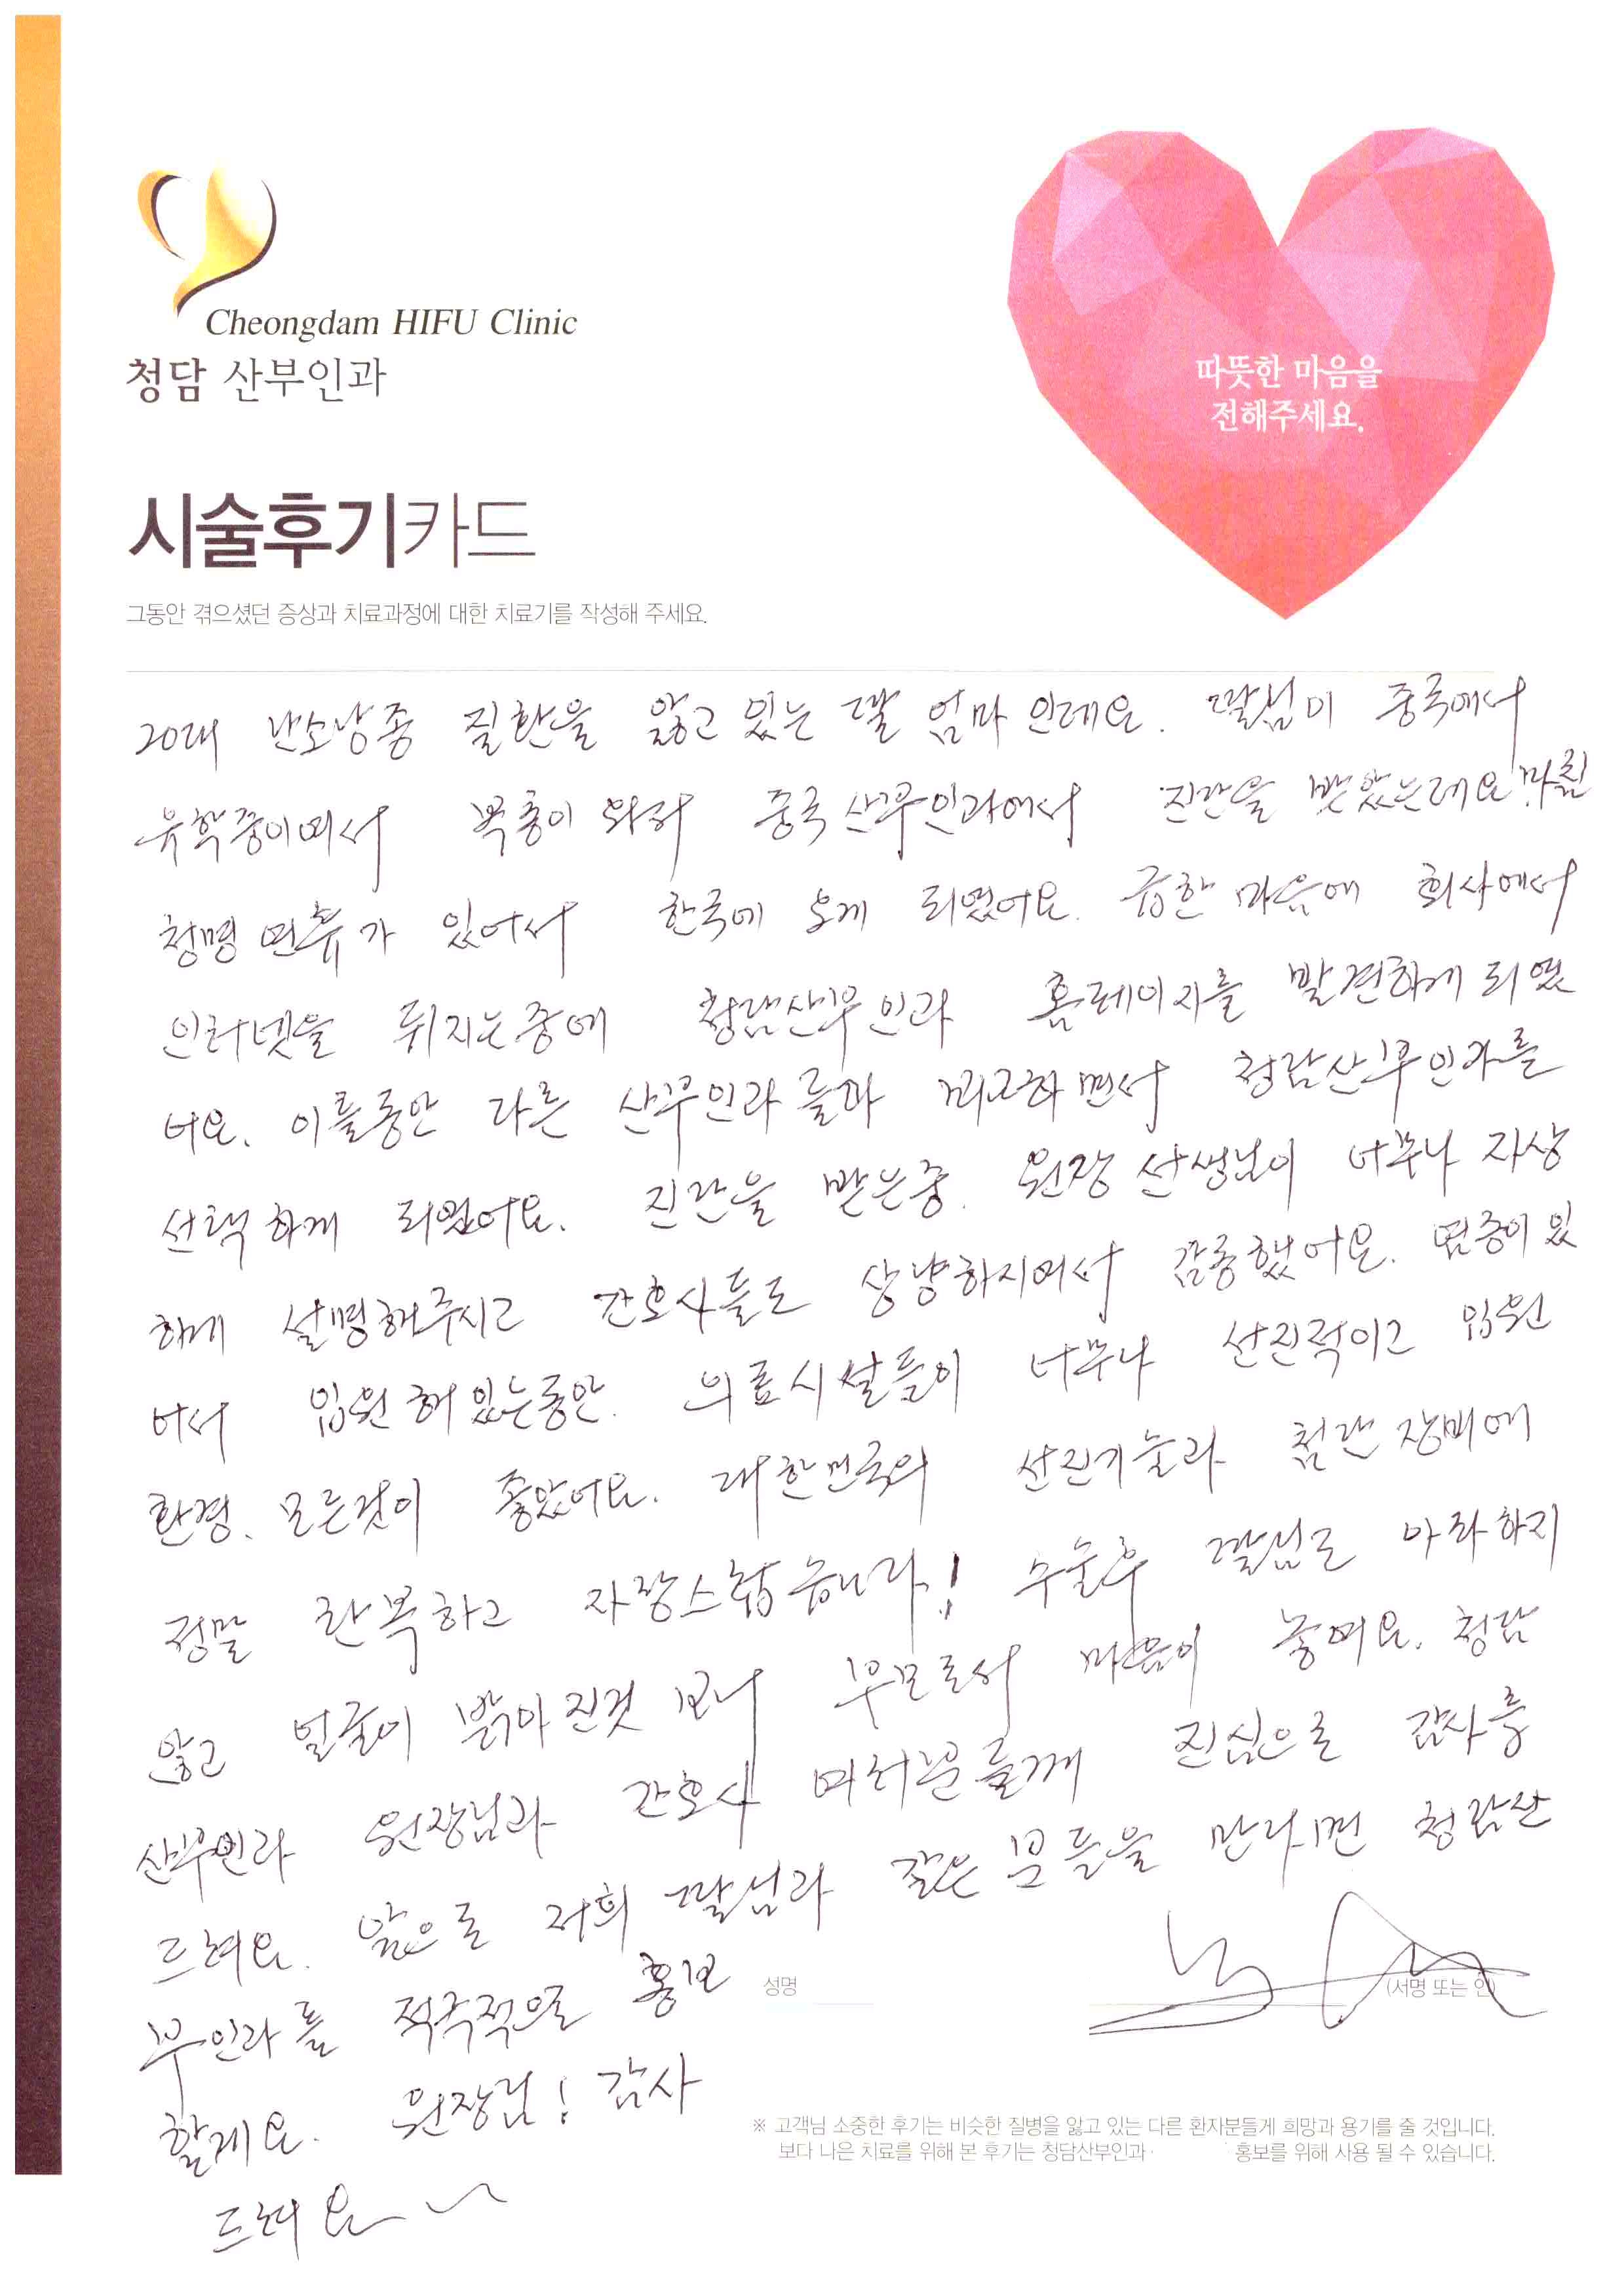 Cheongdam HIFU Clinic
청담 산부인과
따뜻한 마음을
전해주세요.
시술후기카드
그동안 겪으셨던 증상과 치료과정에 대한 치료기를 작성해 주세요.
20대 난소낭종 질환을 앓고 있는 딸 엄마 인데요. 딸님이 중국에서
유학중이여서 복통이 와서 중국 산부인과에서 진단을 받았는데요 마침
청명 연휴가 있어서 한국에 오게 되였어요. 급한 마음에 회사에서
인터넷을 뒤지는중에 청담산부인과 홈페이지를 발견하게 되였
어요. 이틀동안 다른 산부인과 들과 비교하면서 청담산부인과를
선택하게 되였어요. 진단을 받는중. 원장 선생님이 너무나 자상
하게 설명해주시고 간호사들도 상냥하지여서 감동했어요. 염증이 있
어서 입원해 있는동안. 의료시설들이 너무나 선진적이고 입원
환경. 모든것이 좋았어요. 대한민국의 선진기술과 첨단 장비에
정말 탄복하고 자랑스럽습니다! 수술후 딸님도 아파하지
않고 얼굴이 밝아진것 보니 부모로서 마음이 놓여요. 청담
산부인과 원장님과 간호사 여러분들께 진심으로 감사를
드려요. 앞으로 저희 딸님과 같은 분들을 만나면 청담산
부인과를 적극적으로 홍보
성명
(서명 또는 인)
할게요. 원장님! 감사
드려요~
※ 고객님 소중한 후기는 비슷한 질병을 앓고 있는 다른 환자분들게 희망과 용기를 줄 것입니다.
보다 나은 치료를 위해 본 후기는 청담산부인과 홍보를 위해 사용 될 수 있습니다.